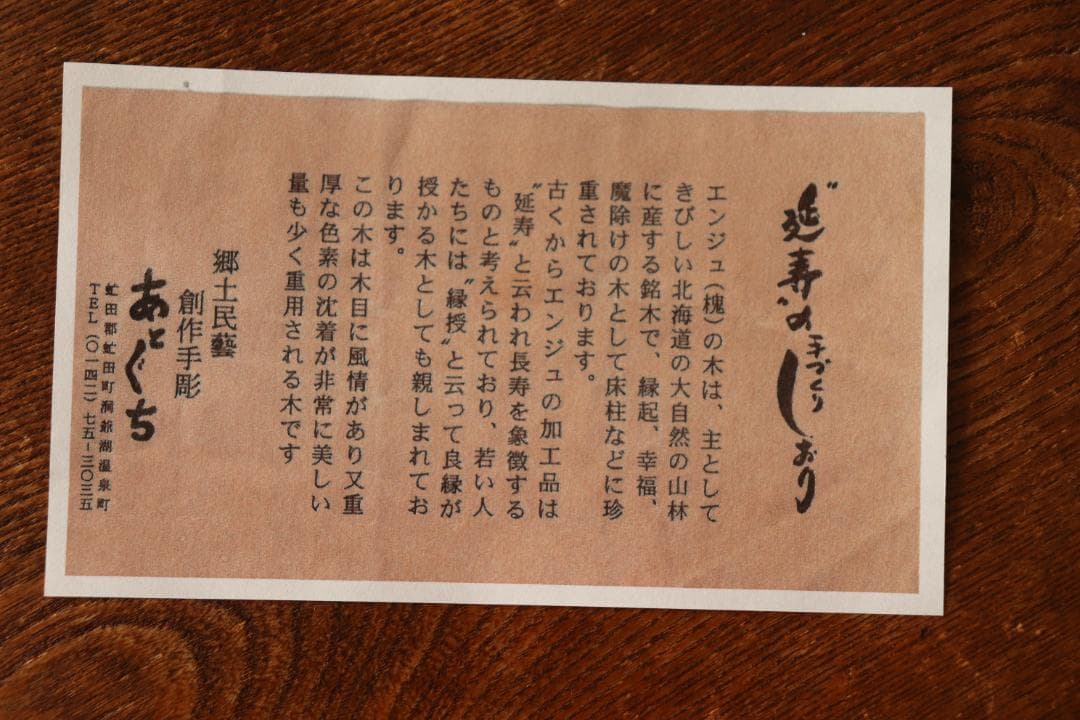 "延寿"の手づくりしおり
エンジュ（槐）の木は、主として
きびしい北海道の大自然の山林
に産する銘木で、縁起、幸福、
魔除けの木として床柱などに珍
重されております。
古くからエンジュの加工品は
"延寿"と云われ長寿を象徴する
ものと考えられており、若い人
たちには"縁授"と云って良縁が
授かる木としても親しまれてお
ります。
この木は木目に風情があり又重
厚な色素の沈着が非常に美しい
量も少く重用される木です
郷土民藝
創作手彫
あとぐち
虻田郡虻田町洞爺湖温泉町
TEL（〇一四二）七五-三〇三五